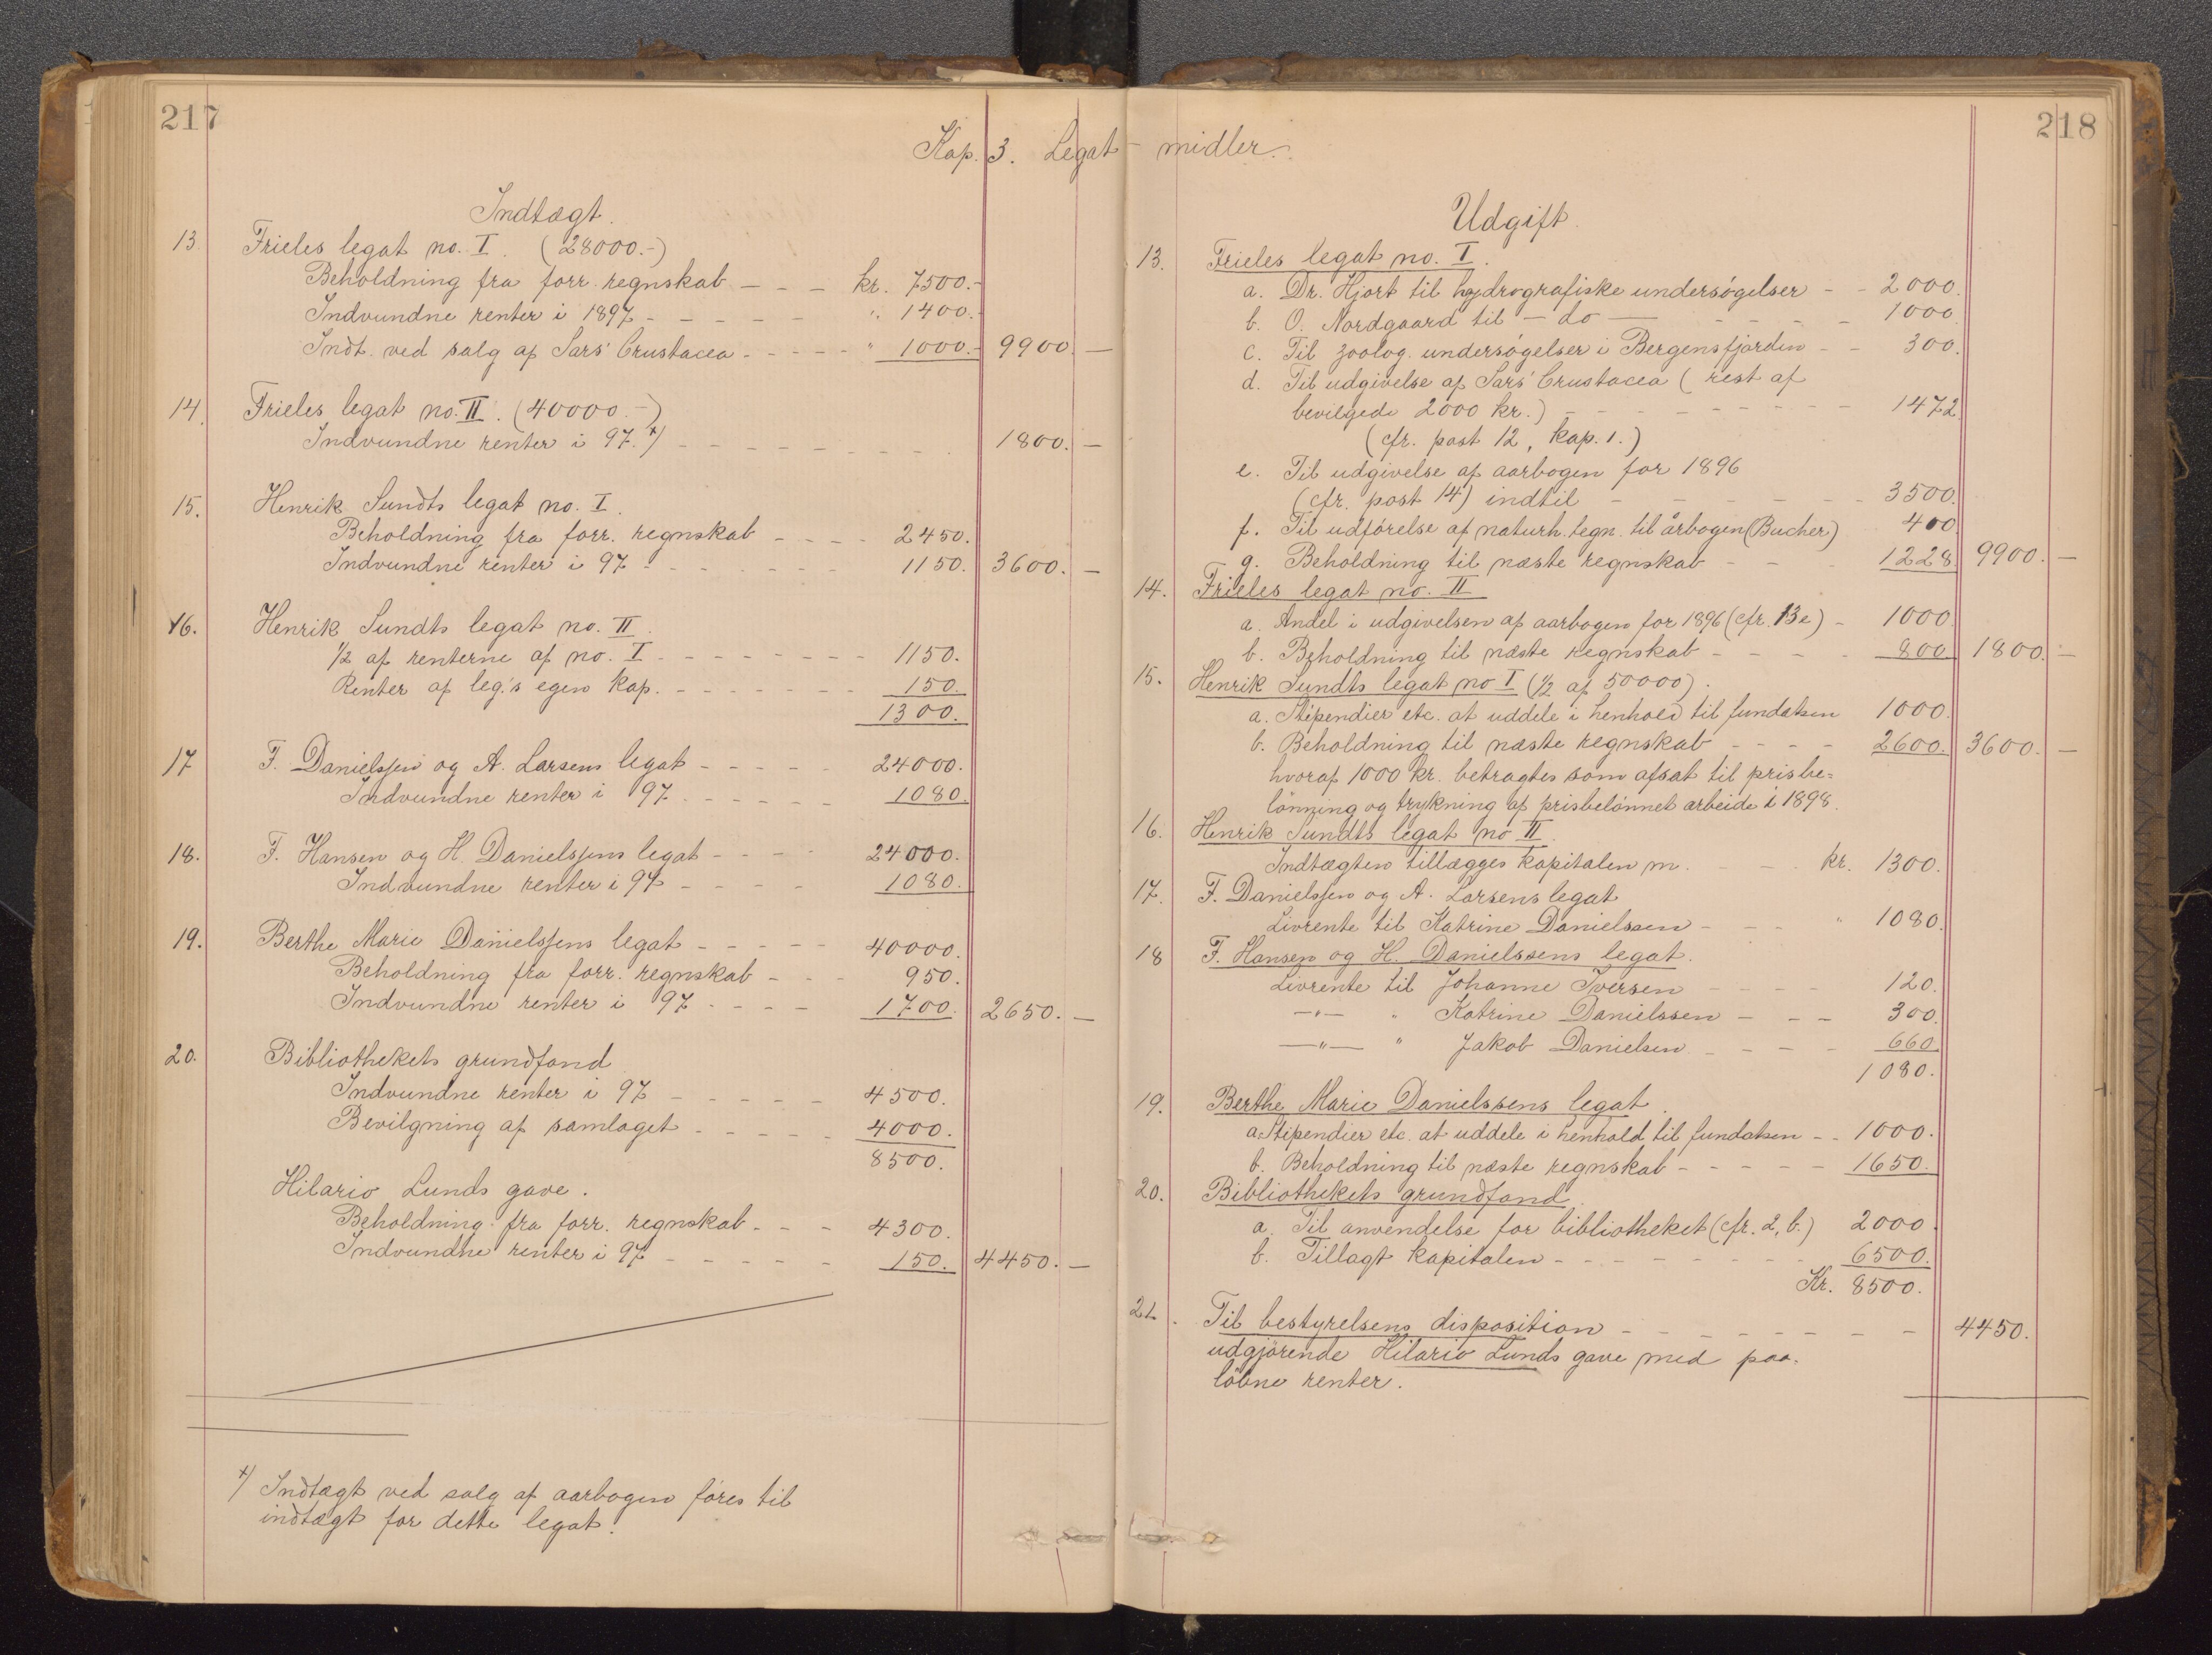 217
Kap. 3. Legat-midler.
Indtægt.
13. Frieles legat no. I. (28000.-)
Beholdning fra forr. regnskab - - - kr. 7500.-
Indvundne renter i 1897 - - - - - " 1400.-
Indt. ved salg af Sars' Crustacea - - - - - " 1000.- 9900. —
14. Frieles legat no. II. (40000.-)
Indvundne renter i 97. x) - - - - - - - - 1800. —
15. Henrik Sundts legat no. I.
Beholdning fra forr. regnskab - - - - 2450.
Indvundne renter i 97 - - - - - - 1150. 3600. —
16. Henrik Sundts legat no. II.
1/2 af renterne af no. I - - - - - - - - 1150.
Renter af leg.'s egen kap. - - - - - - - 150
1300.
17 F. Danielssen og A. Larsens legat - - - - - 24000.
Indvundne renter i 97 - - - - - - 1080.
18. F. Hansen og H. Danielssens legat - - - - 24000.
Indvundne renter i 97 - - - - 1080.
19. Berthe Marie Danielssens legat - - - - - 40000.
Beholdning fra forr. regnskab - - - 950.
Indvundne renter i 97 - - - - 1700. 2650. —
20. Bibliothekets grundfond
Indvundne renter i 97 - - - - - 4500.
Bevilgning af samlaget - - - - - 4000.
8500.
Hilario Lunds gave.
Beholdning fra forr. regnskab - - - 4300.
Indvundne renter i 97 - - - - - 150. 4450. —
x) Indtægt ved salg af aarbogen føres til
indtægt for dette legat.
218
Udgift.
13. Frieles legat no. I.
a. Dr. Hjort til hydrografiske undersøgelser - - 2000.
b. O. Nordgaard til — do — - - - - 1000
c. Til zoolog. undersøgelser i Bergensfjorden - - 300.
d. Til udgivelse af Sars' Crustacea (rest af
bevilgede 2000 kr.) - - - - - - - - - 1472.
(cfr. post 12, kap. 1.)
e. Til udgivelse af aarbogen for 1896
(cfr. post 14) indtil - - - - - - - 3500.
f. Til udførelse af naturh. tegn. til årbogen (Bucher) 400
g. Beholdning til næste regnskab - - - 1228. 9900. —
14. Frieles legat no. II
a. Andel i udgivelsen af aarbogen for 1896 (cfr. 13e) - 1000
b. Beholdning til næste regnskab - - - - - 800 1800. —
15. Henrik Sundts legat no I (1/2 af 50000).
a. Stipendier etc. at uddele i henhold til fundatsen 1000.
b. Beholdning til næste regnskab - - - - 2600. 3600. —
hvoraf 1000 kr. betragtes som afsat til prisbe=
lønning og trykning af prisbelønnet arbeide i 1898.
16. Henrik Sundts legat no II.
Indtægten tillægges kapitalen m. - - - kr. 1300.
17. F. Danielssen og A. Larsens legat
Livrente til Katrine Danielssen - - - " 1080.
18 F. Hansen og H. Danielssens legat.
Livrente til Johanne Iversen - - - - 120.
—"— " Katrine Danielssen - - - 300.
—"— " Jakob Danielsen - - - - 660
1080.
19. Berthe Marie Danielssens legat.
a. Stipendier etc. at uddele i henhold til fundatsen - - 1000.
b. Beholdning til næste regnskab - - - - - 1650.
20. Bibliothekets grundfond.
a. Til anvendelse for bibliotheket (cfr. 2, b.) 2000.
b. Tillagt kapitalen - - - - - - - 6500.
Kr. 8500.
21. Til bestyrelsens disposition - - - - - - - - 4450.
udgjørende Hilario Lunds gave med paa-
løbne renter.